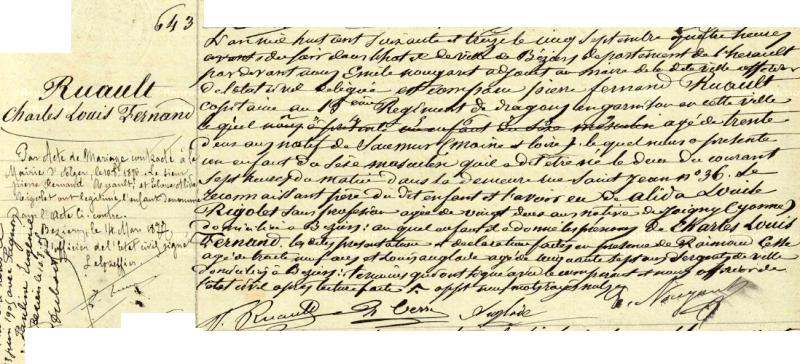 643
Ruault
Charles Louis Fernand
Par Acte de Mariage contracté à la
Mairie d'
pierre Fernand Ruault et
Rigolet ont légitimé l'enfant dénommé
en l'acte ci contre.
Béziers, le 14 Mars 1877
l'officier de l'état civil signé
L'an mil huit cent soixante et treize le cinq Septembre quatre heures
du soir dans l'hotel de ville de Béziers département de l'herault
pardevant nous Emile nougaret adjoint au maire de la dite ville officier
de l'état civil délégué est comparu pierre fernand Ruault
capitaine au Regiment de dragons en garnison en cette ville
lequel nous a présenté un enfant du sexe masculin agé de trente
deux ans natif de Saumur (Maine et loire), lequel nous a présenté
un enfant du sexe masculin qu'il a dit être né le deux du courant
sept heures du matin dans la demeure rue Saint Jean n° 36. Se
reconnaissant père du dit enfant et l'avoir eu de Alida Louise
Rigolet sans profession agée de vingt deux ans native de Joigny (yonne)
domiciliée à Béziers; auquel enfant il a donné les prenoms de Charles Louis
Fernand. les dites présentation et déclaration faites en présence de Raimond
agé de trente neuf ans et Louis anglade agé de cinquante sept ans Sergents de ville
domiciliés à Béziers; témoins qui ont signé avec le comparant et nous officier de
l'état civil après lecture faite
Ruault
Anglade
Nougaret